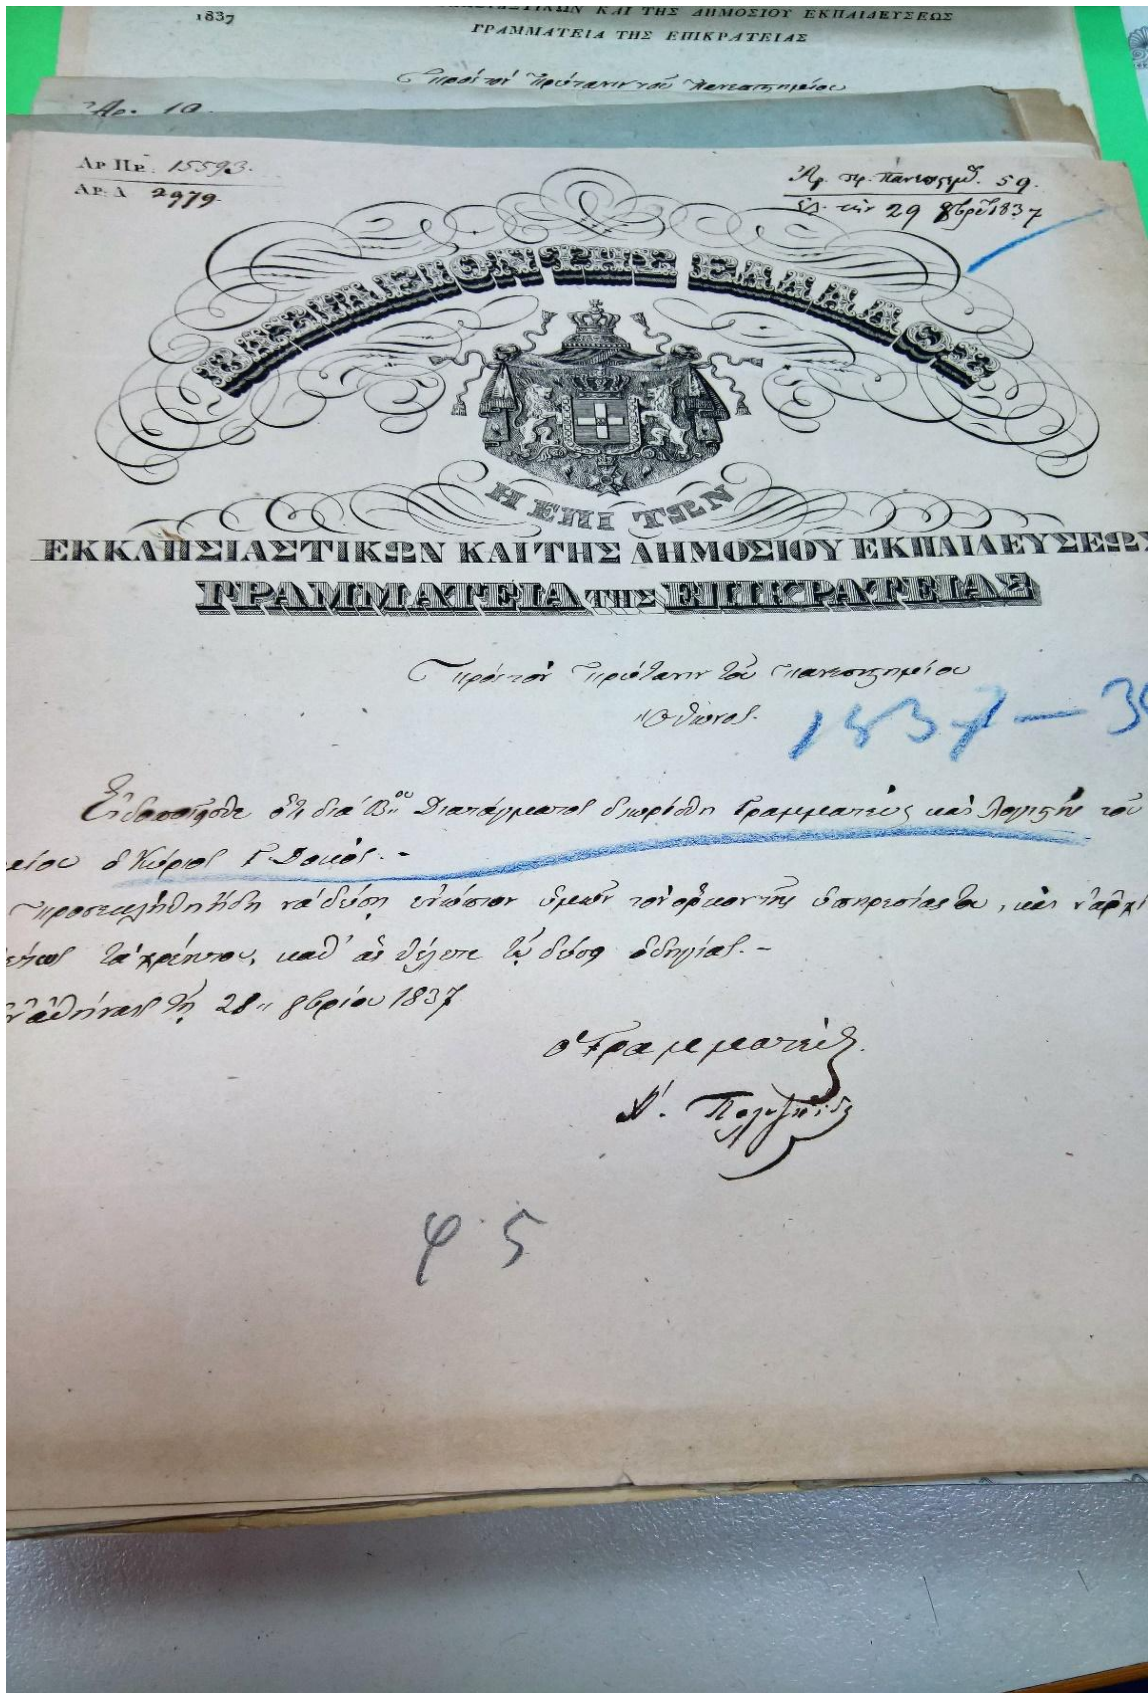 1837
ΚΑΙ ΤΗΣ ΔΗΜΟΣΙΟΥ ΕΚΠΑΙΔΕΥΣΕΩΣ
ΓΡΑΜΜΑΤΕΙΑ ΤΗΣ ΕΠΙΚΡΑΤΕΙΑΣ
Πρὸς τὸν Πρύτανιν τοῦ Πανεπιστημίου
Ἀρ. 10
ΑΡ. ΠΡ. 15593.
ΑΡ. Δ. 2979.
Ἀρ. πρ. πανεπιστημ. 59.
τὴν 29 8βρίου 1837
ΒΑΣΙΛΕΙΟΝ ΤΗΣ ΕΛΛΑΔΟΣ
Η ΕΠΙ ΤΩΝ
ΕΚΚΛΗΣΙΑΣΤΙΚΩΝ ΚΑΙ ΤΗΣ ΔΗΜΟΣΙΟΥ ΕΚΠΑΙΔΕΥΣΕΩΣ
ΓΡΑΜΜΑΤΕΙΑ ΤΗΣ ΕΠΙΚΡΑΤΕΙΑΣ
Πρὸς τὸν Πρύτανιν τοῦ Πανεπιστημίου
Ὄθωνος.
1837 – 3
Εἰδοποιεῖσθε ὅτι διὰ Βου Διατάγματος διωρίσθη Γραμματεὺς καὶ Λογιστὴς τοῦ
είου ὁ Κύριος Γ. Δοκός. -
Προσεκλήθη ἤδη νὰ δώσῃ ἐνώπιον ὑμῶν τὸν ὅρκον τῆς ὑπηρεσίας του, καὶ ν' ἀρχί
τὰ χρέη του, καθ' ἃς θέλετε τῷ δώσῃ ὁδηγίας. -
Ἐν Ἀθήναις τῇ 28 8βρίου 1837
ὁ Γραμματεὺς
Α. Πολυζωίδης
φ. 5